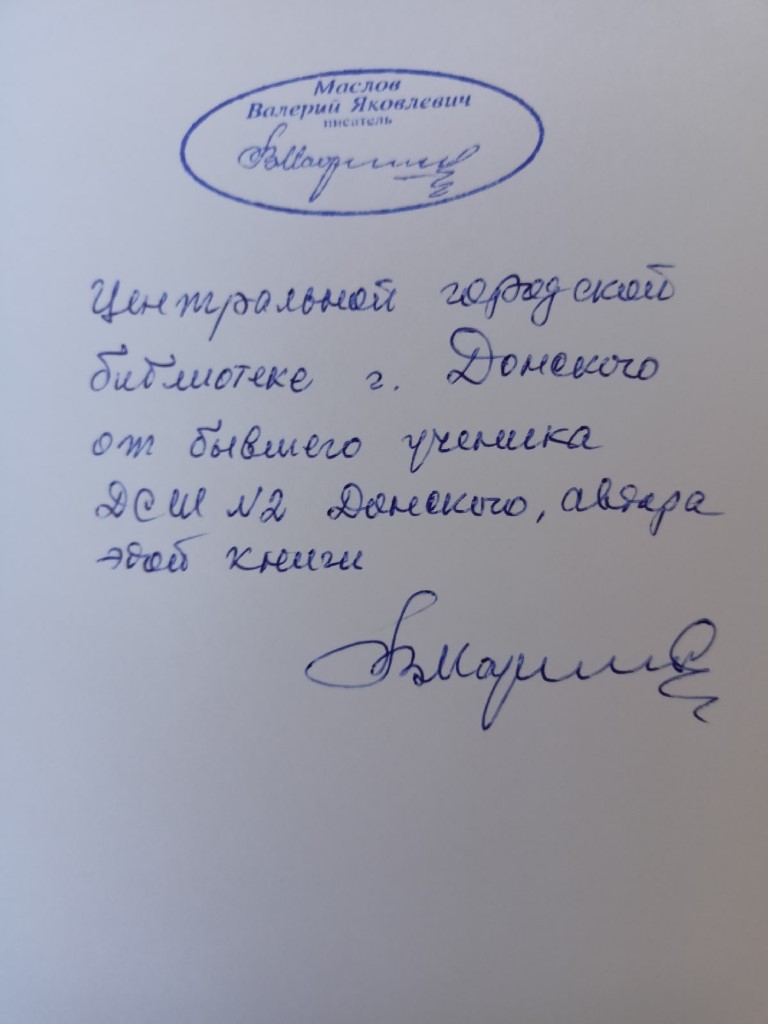 Маслов
Валерий Яковлевич
писатель
Центральной городской
библиотеке г. Донского
от бывшего ученика
ДСШ №2 Донского, автора
этой книги